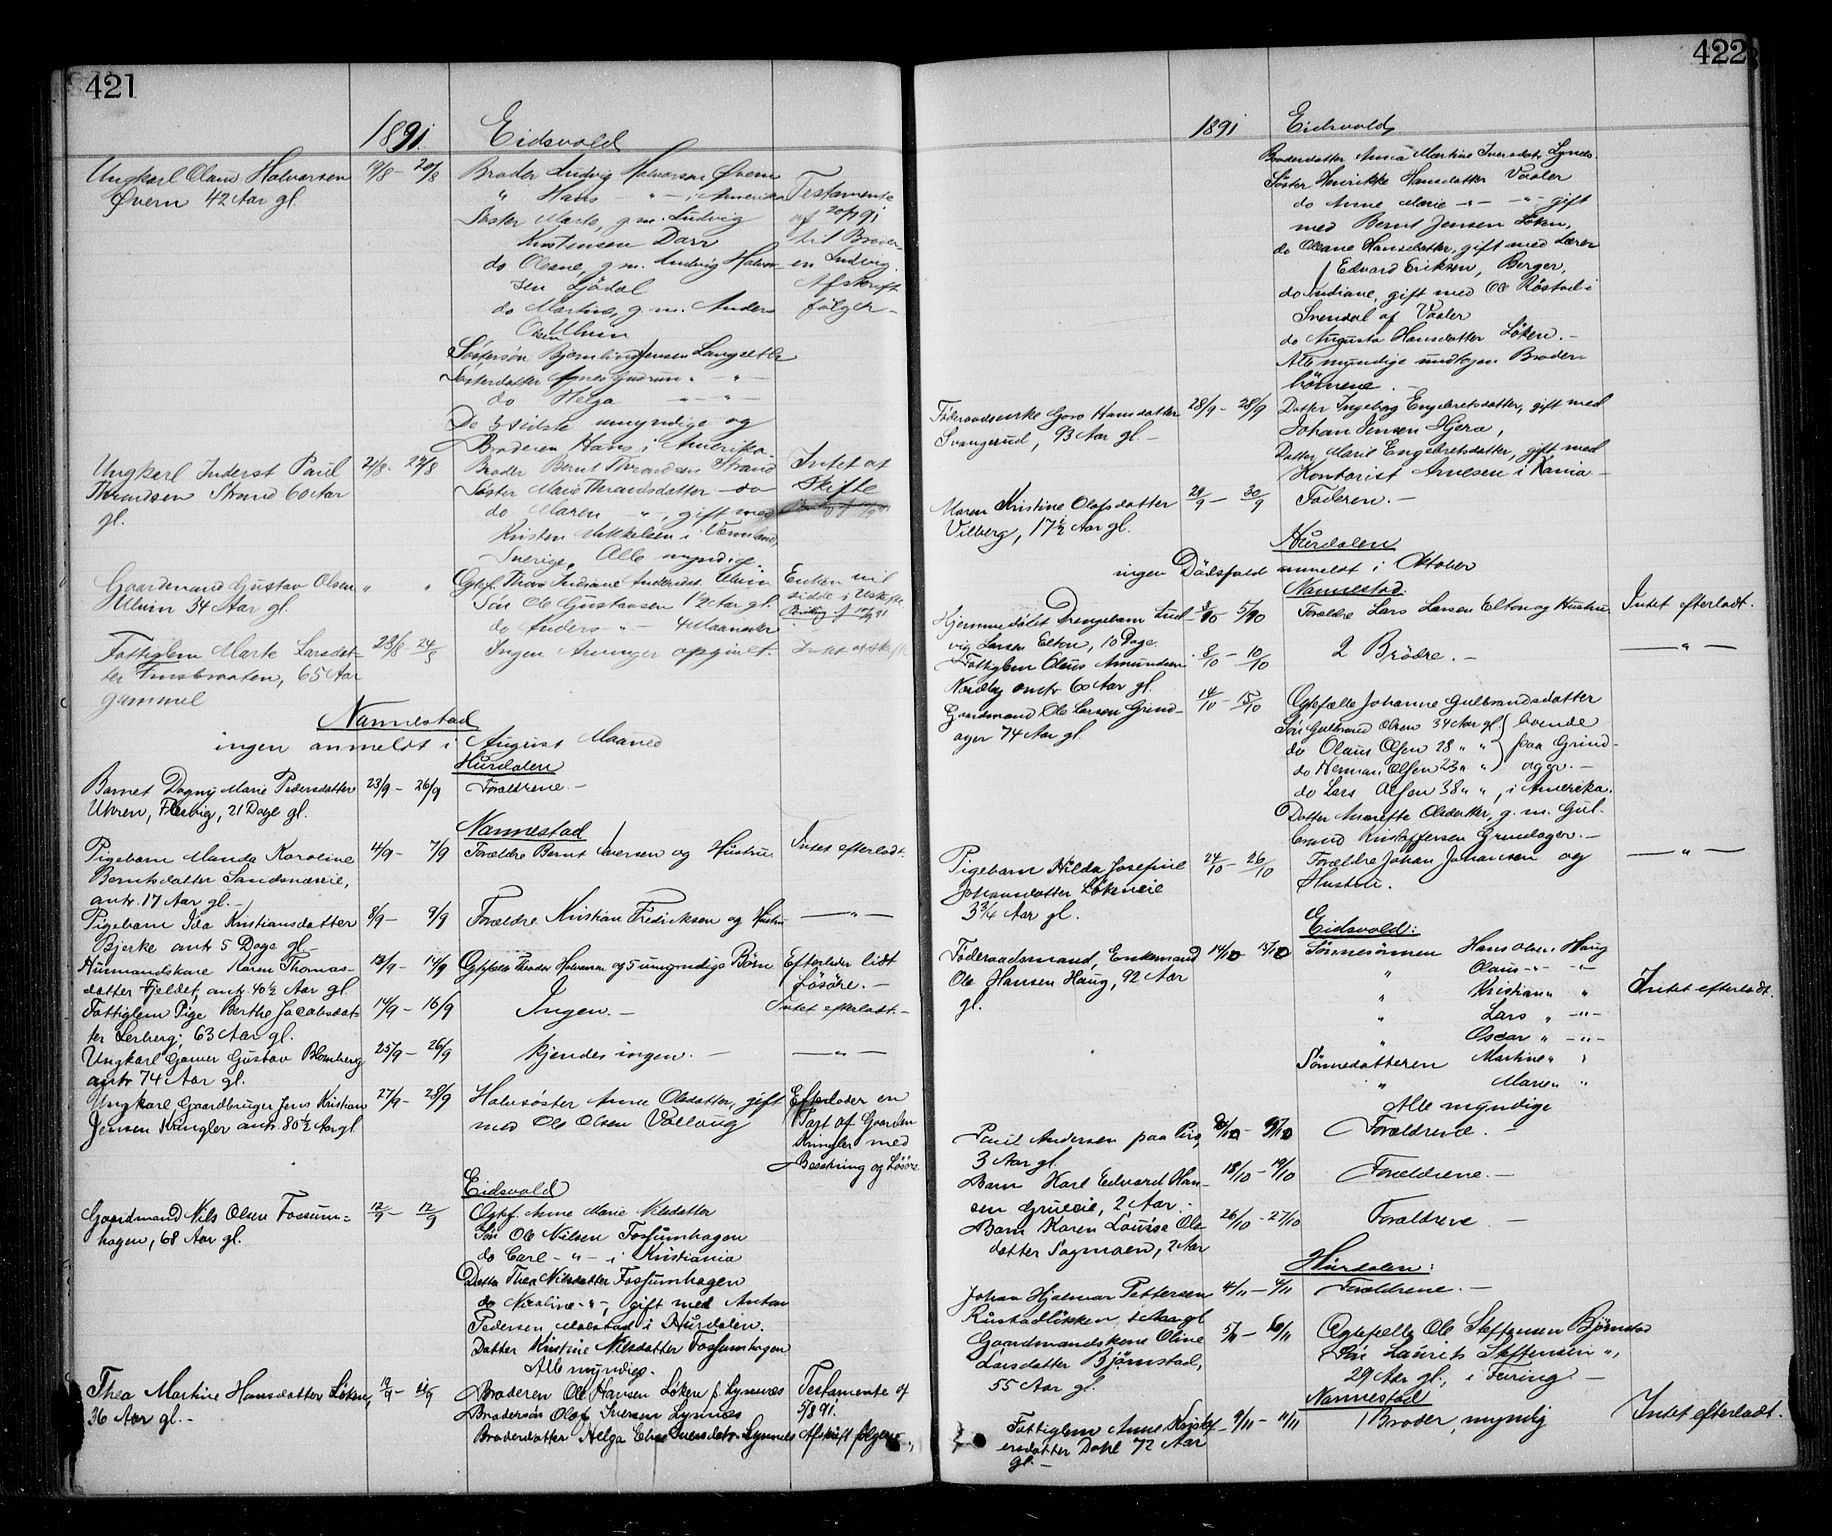 421
1891. Eidsvold
Ungkarl Olaus Halvorsen 19/8 - 20/8 Broder Ludvig Halvorsen Øvern
Øvern 42 Aar gl. " Hans - " - i Amerika Testamente
Søster Marte, g.m. Ludvig af 20/7 91
Kristensen Dorr til Broder-
do Oleane, g.m. Ludvig Halvor- en Ludvig.
sen Ljødal Afskrift
do Martine, g.m. Anders følger -
Olsen Ulvin
Søstersøn Jensen Langseth
Søsterdatter Agnes Gudrun - " -
do Helga - " -
De 3 sidste umyndige og
Broderen Hans i Amerika.
Ungkarl Inderst Paul 21/8 - 22/8 Broder Bernt Throndsen Strand Intet at
Throndsen Strand 60 Aar Søster Marie Throndsdatter - do Skifte
gl. do Maren " , gift med
Kristen Mikkelsen i Vermland,
Sverige, Alle myndig.
Gaardmand Gustav Olsen " " Ægtef. Thora Indiane Andersdat. Ulvin Enken vil
Ulvin 34 Aar gl. Søn Ole Gustavsen 1 1/2 Aar gl. sidde i Uskifte
do Anders - " - 4 Maaneder
Fattiglem Marte Larsdat- 23/8 - 24/8 Ingen Arvinger opgivet. Intet at skifte
ter Finsbraaten, 65 Aar
gammel
Nannestad
ingen anmeldt i August Maaned
Hurdalen
Barnet Dagny Marie Pedersdatter 23/9 - 26/9 Forældrene -
Uhren, 21 Dage gl.
Nannestad
Pigebarn Manda Karoline 4/9 - 7/9 Forældre Bernt Iversen og Hustru Intet efterladt.
Berntsdatter Sandsnæseie,
antr. 17 Aar gl. -
Pigebarn Ida Kristiansdatter 8/9 - 9/9 Forældre Kristian Fredriksen og Hustru - " -
Bjerke antr 5 Dage gl -
Husmandskone Karen Thomas- 12/9 - 14/9 Ægtefælle Theodor Halvorsen og 5 umyndige Børn Efterlader lidt
datter Fjeldet, antr. 40 1/2 Aar gl. Løsøre. -
Fattiglem Pige Berthe Jacobsdat- 14/9 - 16/9 Ingen. - Intet efterladt. -
ter Lerberg, 63 Aar gl.
Ungkarl Gamer Gustav Blomberg 25/9 - 26/9 Kjendes ingen. - - " -
antr 74 Aar gl.
Ungkarl, Gaardbruger Jens Kristian 27/9 - 28/9 Halvsøster Anne Olsdatter, gift Efterlader en
Jensen Kringler antr. 80 1/2 Aar gl med Ole Olsen Vollaug Part af Gaarden
Kringler med
Besætning og Løsøre
Eidsvold
Gaardmand Nils Olsen Fossum= 12/9 - 12/9 Ægtef. Anne Marie Nilsdatter
hagen, 68 Aar gl. Søn Ole Nilsen Fossumhagen
do Carl - " - i Kristiania
Datter Thea Nilsdatter Fossumhagen
do Nicoline - " -, gift med Anton
Pedersen i Hurdalen.
Datter Kristine Nilsdatter Fossumhagen
Alle myndige.
Thea Martine Hansdatter Løken, 19/9 - 21/9 Broderen Ole Hansen Løken p. Lynnæs Testamente af
36 Aar gl. - Brodersøn Olaf Iversen Lynnæs 5/8 91.
Broderdatter Helga Iversdatr Lynnæs Afskrift følger
422
1891 Eidsvold
Broderdatter Anna Martine Iversdatr Lynæs.
Søster Henrikke Hansdatter Vaaler
do Anne Marie - " - " - gift
med Bernt Jensen Løken,
do Oleane Hansdatter, gift med Lærer
Edvard Eriksen, Berger,
do Indiane, gift med Ole Røstad i
Svendal af Vaaler
do Augusta Hansdatter Løken. -
Alle myndige undtagen Broder-
børnene. -
Føderaadsenke Goro Hansdatter 28/9 - 28/9 Datter Ingeborg Engebretsdatter, gift med
Svangerud, 93 Aar gl. - Johan Jensen Hjera,
Datter Marie Engebretsdatter, gift med
Kontorist Arnesen i Kania -
Maren Kristine Olafsdatter 29/9 - 30/9 Faderen. -
Vilberg, 17 1/2 Aar gl.
Hurdalen
ingen Dødsfald anmeldt i Oktober
Nannestad.
Hjemmedøbt Drengebarn Lud- 3/10 5/10 Forældre Lars Larsen Elton og Hustru Intet efterladt.
vig Larsen Elton, 10 Dage
Fattiglem Olaus Amundsen 8/10 - 10/10 2 Brødre. - - " -
Nordby antr 60 Aar gl.
Gaardmand Ole Larsen Grind- 14/10 - 15/10 Ægtefælle Johanne Gulbrandsdatter
ager 74 Aar gl. Søn Gulbrand Olsen 34 Aar gl boende
do Olaus Olsen 28 " " paa Grind-
do Herman Olsen 23 " " ager. -
do Lars Olsen 38 " ", i Amerika.
Datter Olsdatter, g.m. Gul-
brand Kristoffersen Grindager. -
Pigebarn Hilda Josefine 24/10 - 26/10 Forældre Johan Johansen og - " -
Johansdatter Løkeneie Hustru.
3 3/4 Aar gl.
Eidsvold:
Føderaadsmand, Enkemand 14/10 15/10 Sønnesønnen Hans Olsen Haug
Ole Hansen Haug, 92 Aar " Olaus - " - - " -
gl. " Kristian " " Intet efterladt.
" Lars " - " -
" Oscar " - " -
Sønnedatteren Martine " "
" Maren "
Alle myndige
Paul Andersen paa Piro, 8/10 - 9/10 Forældrene. -
3 Aar gl.
Barn Karl Edvard Han- 18/10 - 19/10 Forældrene. -
sen Grueeie, 2 Aar.
Barn Karen Lousse Ols- 26/10 - 27/10 Forældrene -
datter Sagmoen, 2 Aar
Hurdalen:
Johan Hjalmar Pettersen 4/11 - 4/11 Forældrene. -
Rustadløkken, Aar gl
Gaardmandskone Oline 5/11 - 6/11 Ægtefælle Ole Steffensen Bjørnstad
Larsdatter Bjørnstad, Søn Laurits Steffensen ",
55 Aar gl. 29 Aar gl., i Feiring -
Nannestad
Fattiglem Anne Kristof- 9/11 - 11/11 1 Broder, myndig Intet efterladt.
ersdatter Dahl 72 Aar
gl. -